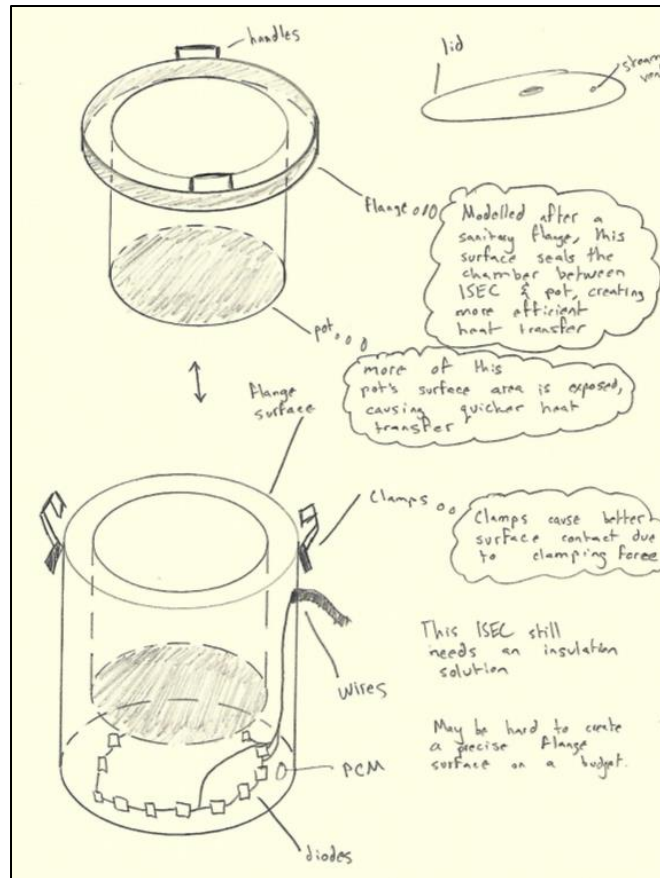 handles
lid
steam
flange
Modelled after a
sanitary flange, this
surface seals the
chamber between
ISEC & pot, creating
more efficient
heat transfer
pot
more of this
pot's surface area is exposed,
causing quicker heat
transfer
flange
surface
Clamps
Clamps cause better
surface contact due
to clamping force
This ISEC still
needs an insulation
solution
wires
May be hard to create
a precise flange
surface on a budget.
PCM
diodes